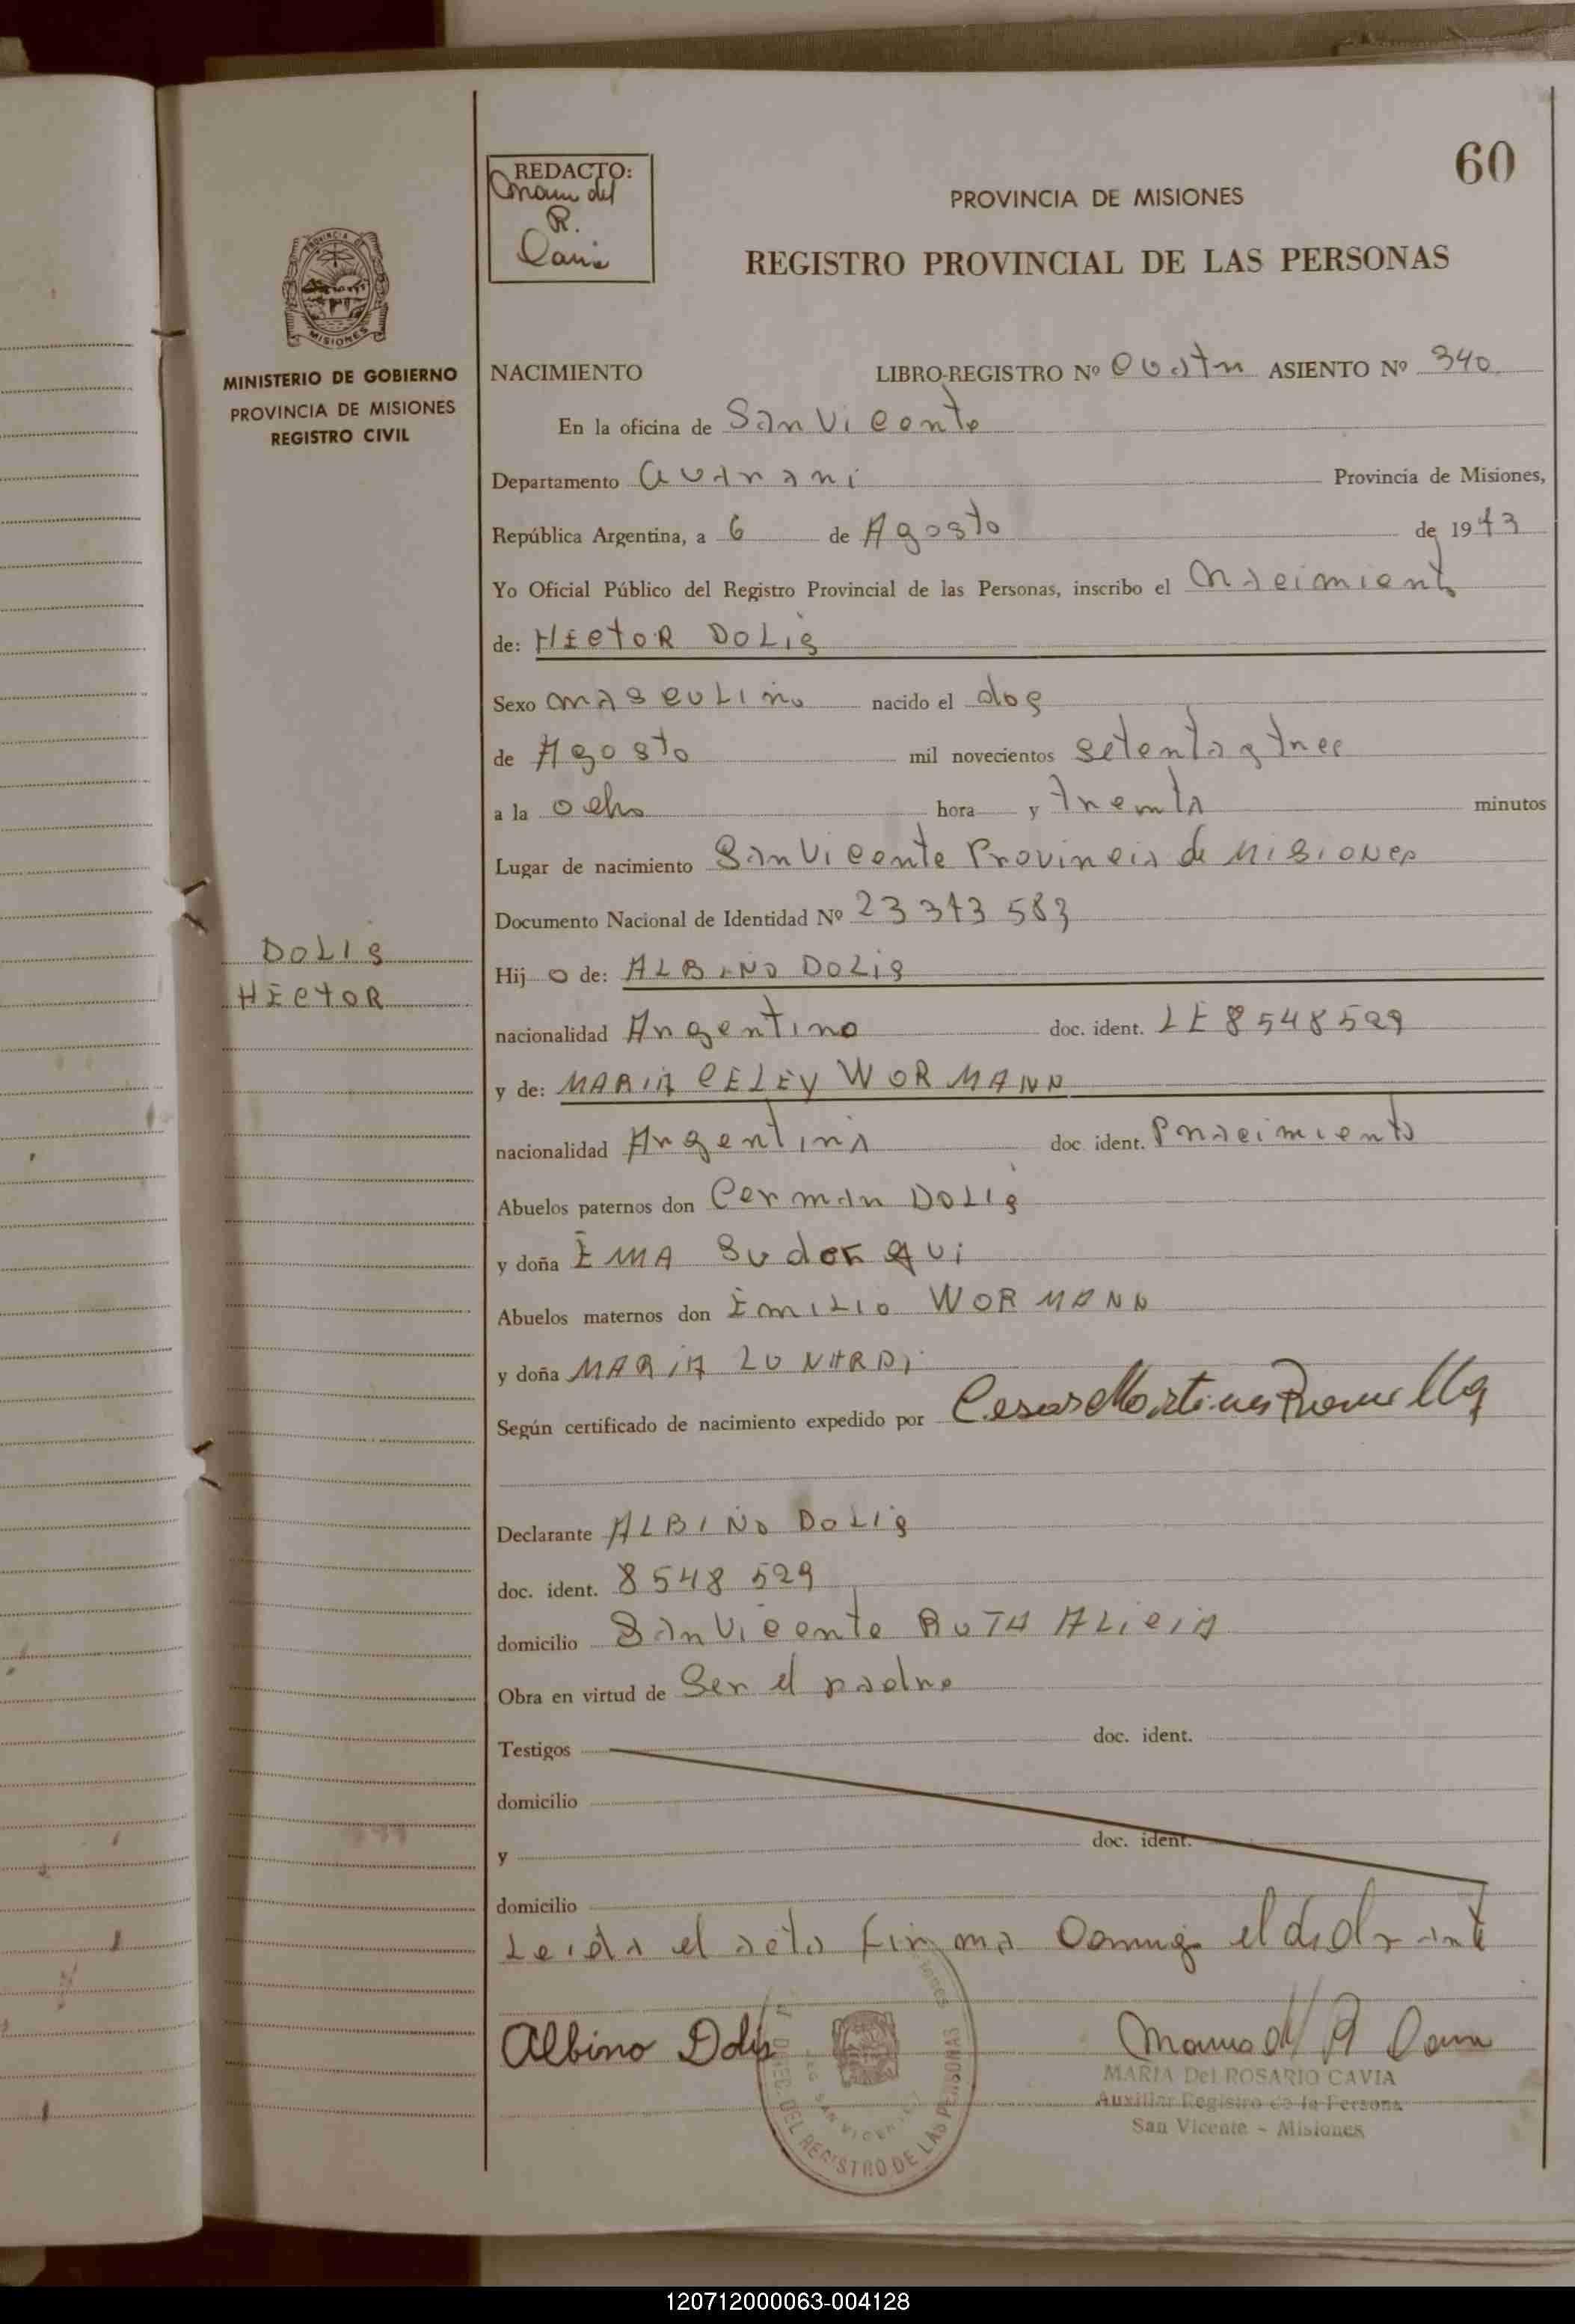 60
REDACTO:
Maria del
R.
Cavia
PROVINCIA DE MISIONES
REGISTRO PROVINCIAL DE LAS PERSONAS
PROVINCIA DE
MISIONES
MINISTERIO DE GOBIERNO
PROVINCIA DE MISIONES
REGISTRO CIVIL
NACIMIENTO LIBRO-REGISTRO Nº cuatro ASIENTO Nº 340
En la oficina de San Vicente
Departamento Guarani Provincia de Misiones,
República Argentina, a 6 de Agosto de 1973
Yo Oficial Público del Registro Provincial de las Personas, inscribo el nacimiento
de: HECTOR DOLIS
Sexo masculino nacido el dos
de Agosto mil novecientos setenta y tres
a la ocho hora y treinta minutos
Lugar de nacimiento San Vicente Provincia de MISIONES
Documento Nacional de Identidad Nº 23 373 583
DOLIS
HECTOR
Hij o de: ALBINO DOLIS
nacionalidad Argentino doc. ident. LE 8548529
y de: MARIA CELEY WORMANN
nacionalidad Argentina doc ident. P nacimiento
Abuelos paternos don German DOLIS
y doña EMA
Abuelos maternos don EMILIO WORMANN
y doña MARIA LUNARDI
Según certificado de nacimiento expedido por Cesar Martinez
Declarante ALBINO DOLIS
doc. ident. 8548 529
domicilio San Vicente RUTA ALICIA
Obra en virtud de Ser el padre
Testigos doc. ident.
domicilio
y doc. ident.
domicilio
Leida el acta firma conmigo el declarante
Albino Dolis
Maria del R Cavia
MARIA Del ROSARIO CAVIA
Auxiliar Registro de la Persona
San Vicente - Misiones
DEL REGISTRO DE LAS PERSONAS
SAN VICENTE
120712000063-004128